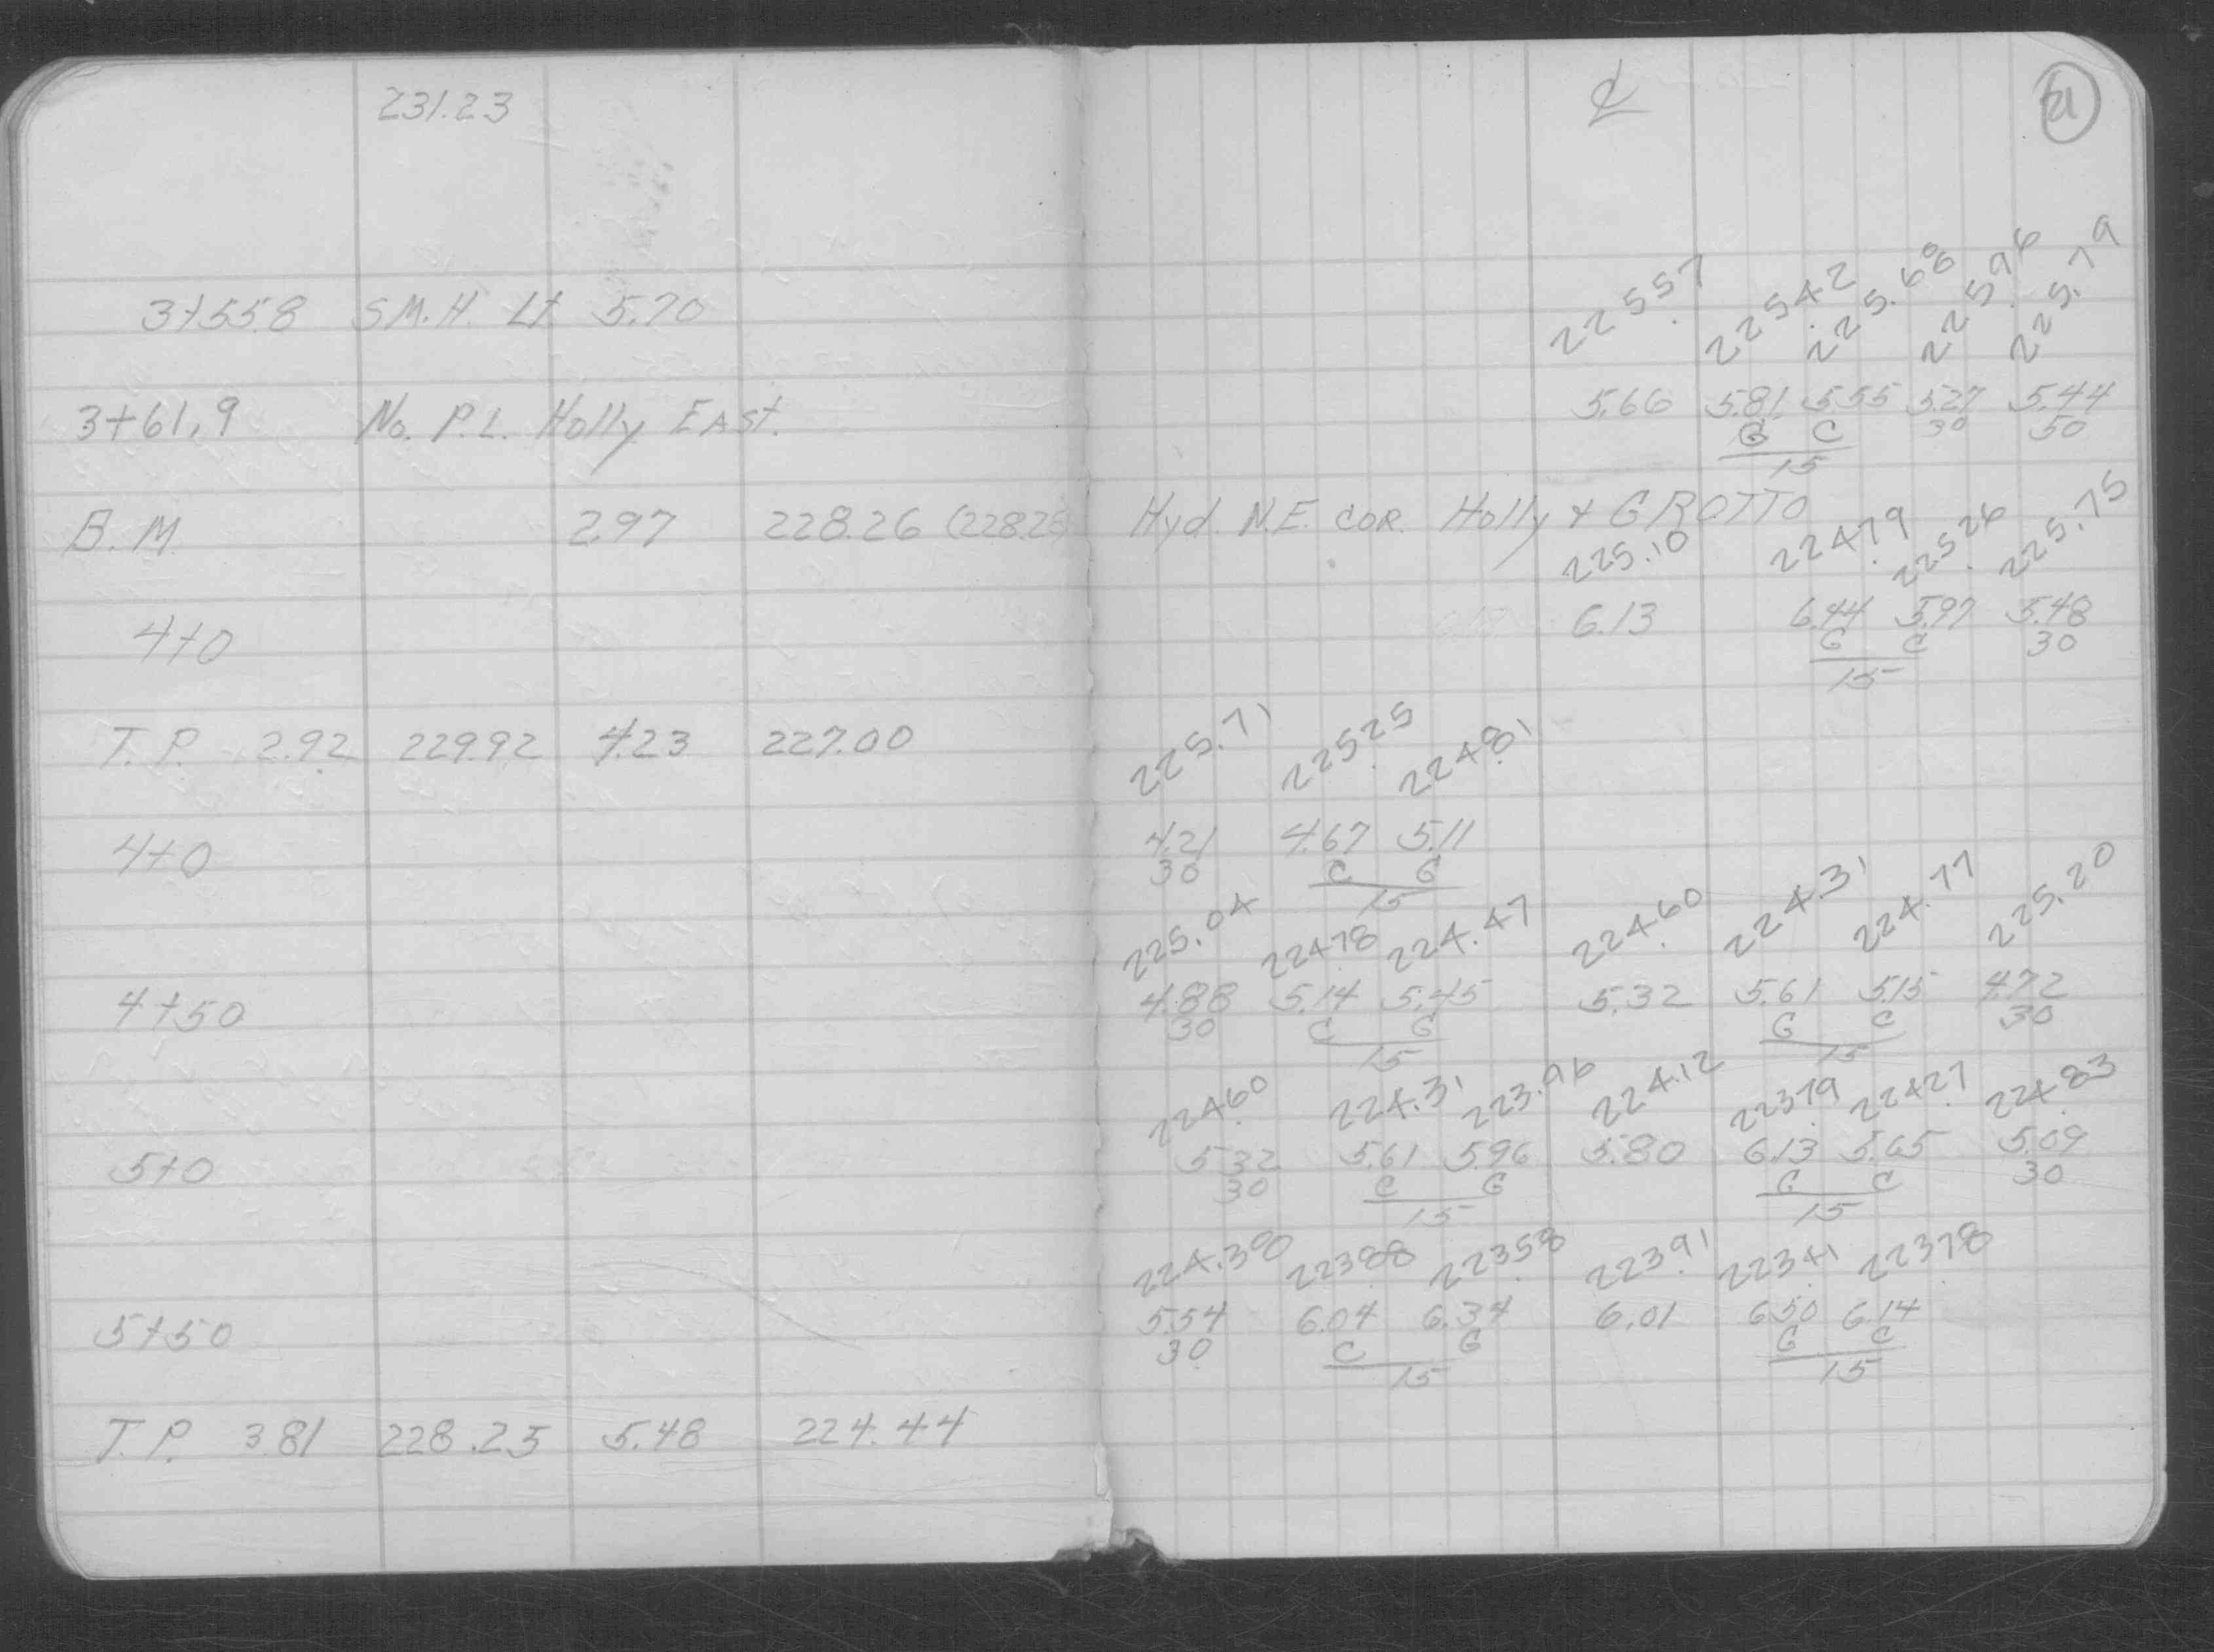 231.23
℄ 21
225.57 225.42 225.68 225.96 225.79
3+55.8 S.M.H. Lt. 5.70
5.66 5.81 5.55 5.27 5.44
3+61.9 No. P.L. Holly East.
G C 30 50
15
B.M. 2.97 228.26 (228.25) Hyd. N.E. COR. Holly & GROTTO
225.10 224.79 225.26 225.75
4+0 6.13 6.44 5.97 5.48
G C 30
15
225.71 225.25 224.81
T.P. 2.92 229.92 4.23 227.00
4+0 4.21 4.67 5.11
30 C G
15
225.04 224.78 224.47 224.60 224.31 224.77 225.20
4+50 4.88 5.14 5.45 5.32 5.61 5.15 4.72
30 C G G C 30
15 15
224.60 224.31 223.96 224.12 223.79 224.27 224.83
5+0 5.32 5.61 5.96 5.80 6.13 5.65 5.09
30 C G G C 30
15 15
224.38 223.88 223.58 223.91 223.41 223.78
5+50 5.54 6.04 6.34 6.01 6.50 6.14
30 C G G C
15 15
T.P. 3.81 228.25 5.48 224.44